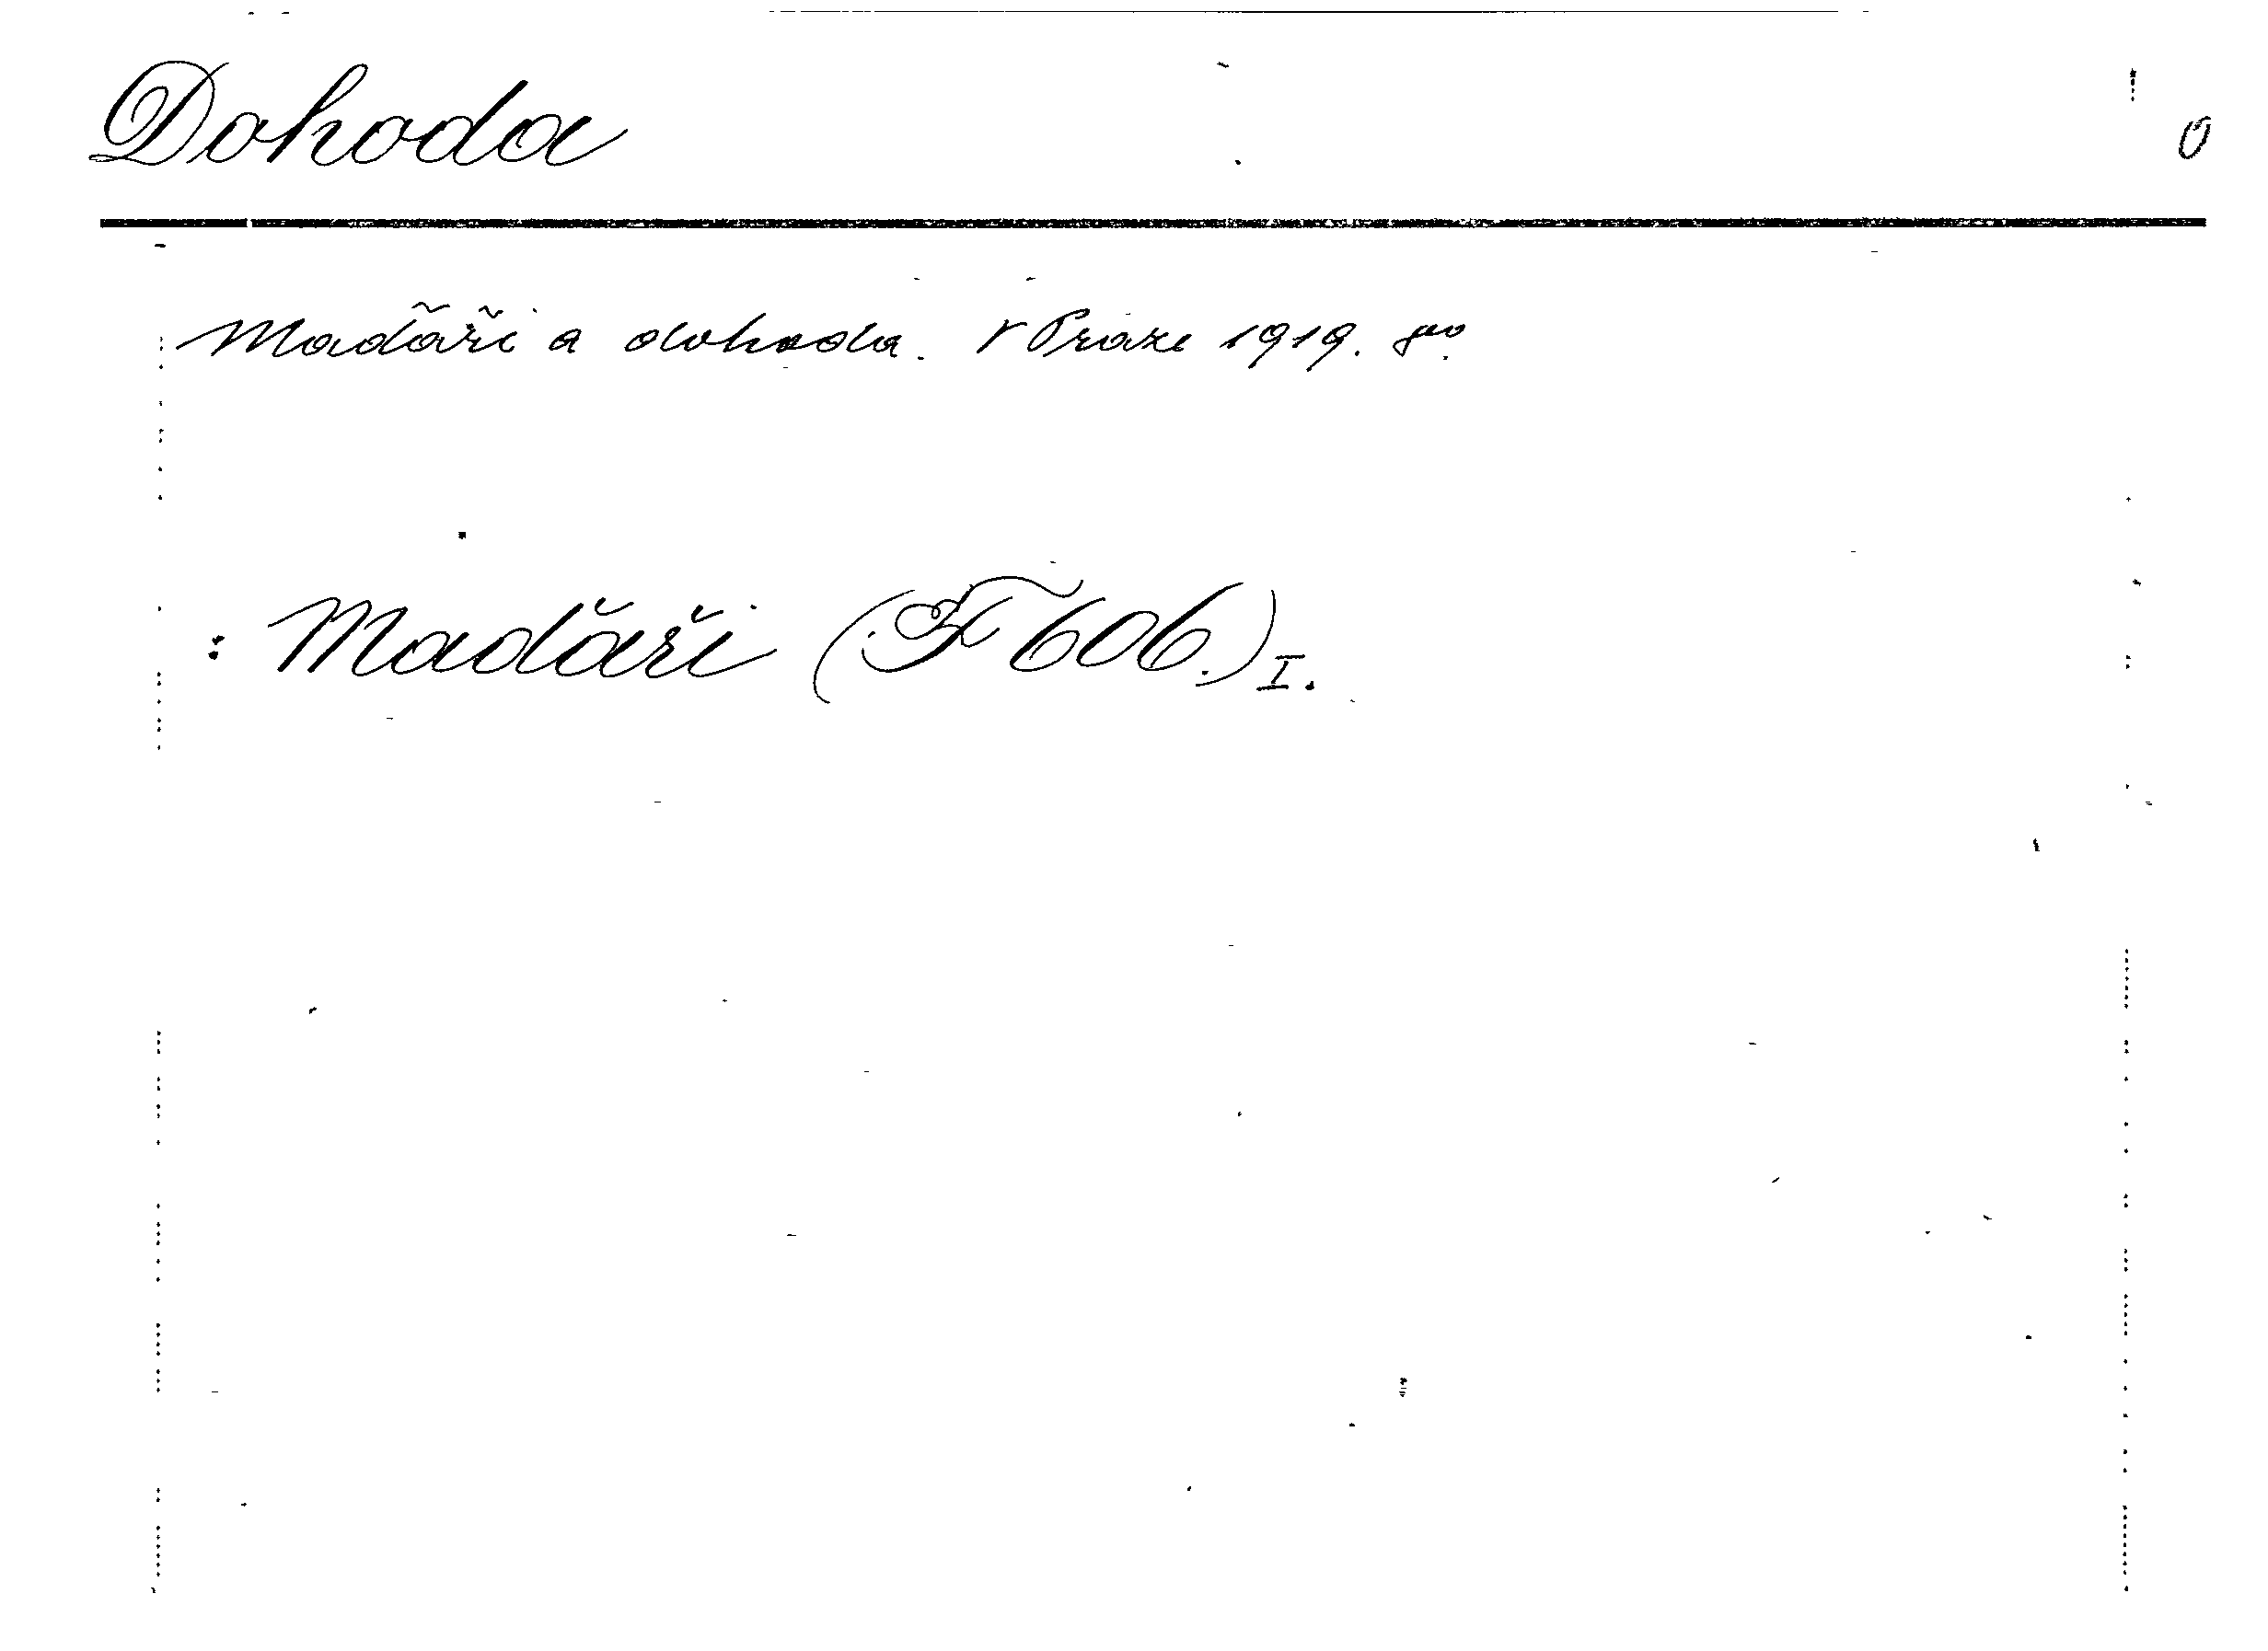 Dohoda
0
Maďaři a dohoda. V Praze 1919. 8º.
: Maďaři (F 606.) I.